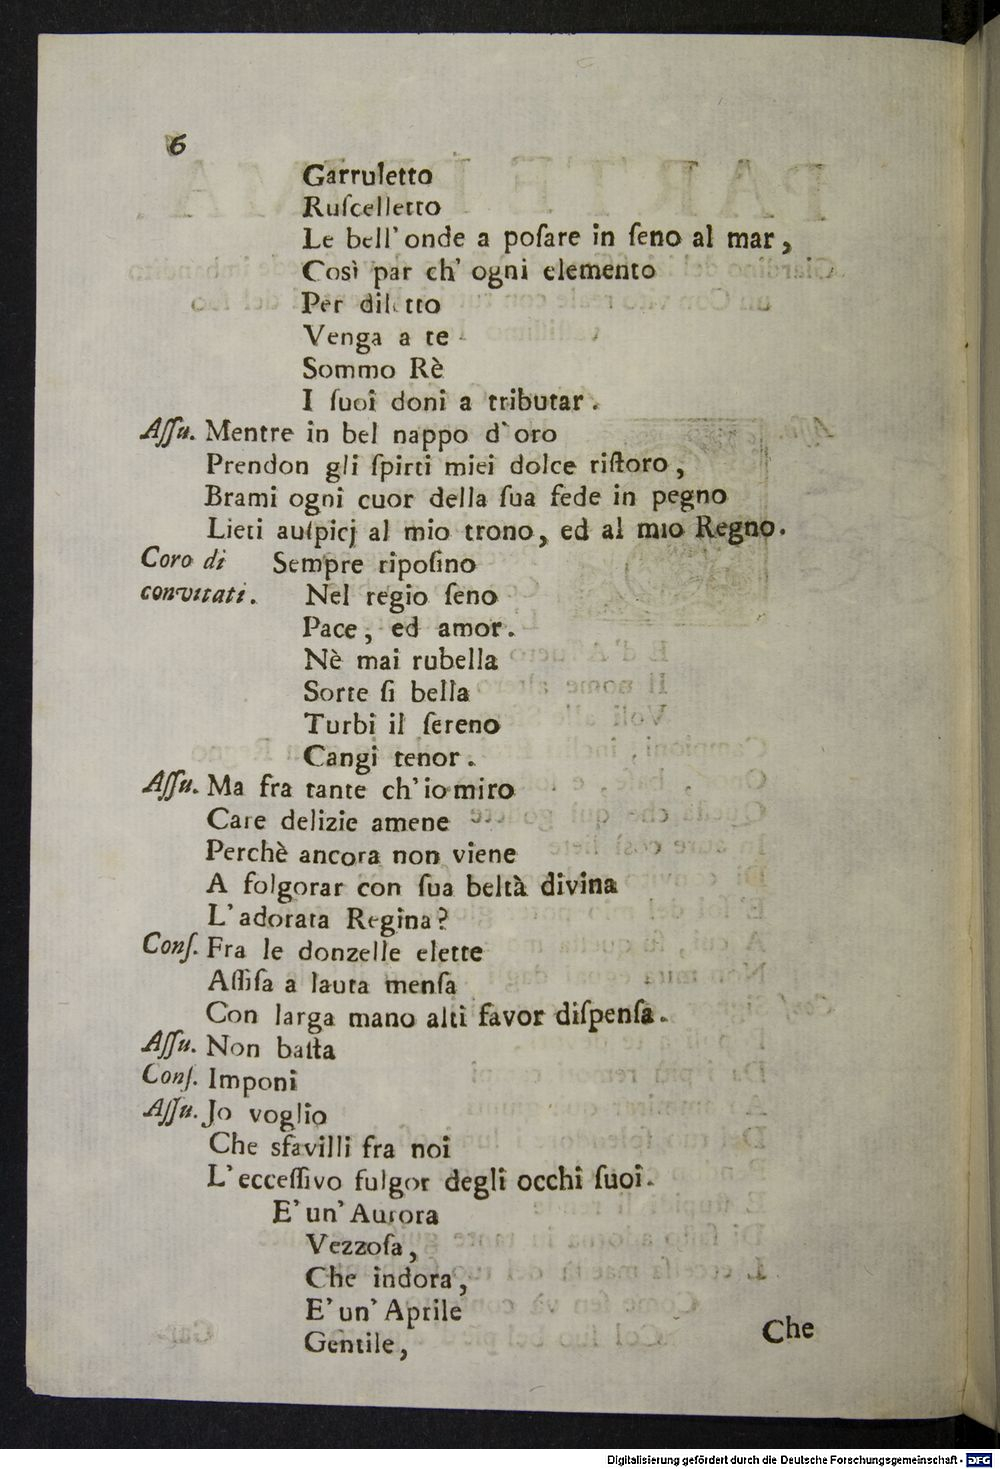 6
Garruletto
Ruſcelletto
Le bell' onde a poſare in ſeno al mar,
Così par ch' ogni elemento
Per diletto
Venga a te
Sommo Rè
I ſuoi doni a tributar.
Aſſu. Mentre in bel nappo d'oro
Prendon gli ſpirti miei dolce riſtoro,
Brami ogni cuor della ſua fede in pegno
Lieti auſpicj al mio trono, ed al mio Regno.
Coro di Sempre ripoſino
convitati. Nel regio ſeno
Pace, ed amor.
Nè mai rubella
Sorte ſi bella
Turbi il ſereno
Cangi tenor.
Aſſu. Ma fra tante ch'io miro
Care delizie amene
Perchè ancora non viene
A folgorar con ſua beltà divina
L'adorata Regina?
Conſ. Fra le donzelle elette
Aſſiſa a lauta menſa
Con larga mano alti favor diſpenſa.
Aſſu. Non baſta
Conſ. Imponi
Aſſu. Jo voglio
Che sfavilli fra noi
L'ecceſſivo fulgor degli occhi ſuoi.
E' un' Aurora
Vezzoſa,
Che indora,
E' un' Aprile
Gentile,
Che
Digitalisierung gefördert durch die Deutsche Forschungsgemeinschaft - DFG